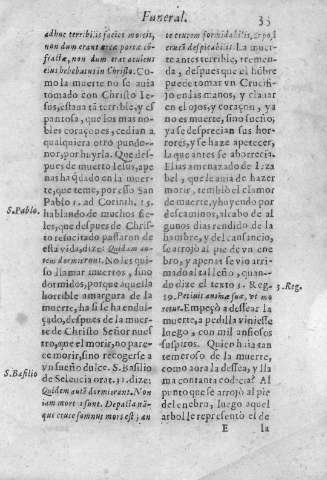 Funeral.
35
adhuc terribilis facies mortis,
non dum erant
non dum erat aculeus
eius hebetatus in Christo. Co-
mo la muerte no se auia
tomado con Christo Ie-
sus, estaua tã terrible, y es
pantosa, que los mas no
bles coraçones, cedian a
qualquiera otro pundo-
nor, por huyrla. Que des-
pues de muerto Iesus, ape-
nas ha q̃dado en la muer-
te, que teme, por esso San
S. Pablo.
Pablo 1. ad Corinth. 15.
hablando de muchos fie-
les, que despues de Chris-
to resucitado passaron de
esta vida, dize: Quidam au-
tem dormierunt. No les qui-
so llamar muertos, sino
dormidos, porque aquella
horrible amargura de la
muerte, ha si se ha endul-
çado, despues de la muer-
te de Christo Señor nues
tro, que el morir, no pare-
ce morir, sino recogerse a
vn sueño dulce. S. Basilio
S. Basilio
de Seleucia orat. 31. dize:
Quidem autẽ dormierunt. Non
iam mortui sunt. Depasta nã-
que cruce somnus mors est; an
te crucem formidabilis, 
crucẽ despicabilis. La muer-
te antes terrible, tremen-
da, despues que el hõbre
puede tomar vn Crucifi-
jo en las manos, y clauar
en el ojos, y coraçon, ya
no es muerte, sino sueño;
ya se desprecian sus hor-
rores, y se haze apetecer,
la que antes se aborrecia.
Elias amenazado de Ieza
bel, que le auia de hazer
morir, temiò el clamor
de muerte, y huyendo por
descaminos, al cabo de al
gunos dias rendido de la
hambre, y del cansancio,
se arrojò al pie de vn ene
bro, y apenas se vio arri-
mado al tal leño, quan-
do dize el texto 3. Reg.
3. Reg.
19. Petiuit animæ suæ, vt mo
reretur. Empeçò a dessear la
muerte, a pedilla viniesse
luego, con mil ansiosos
suspiros. Quien huia tan
temeroso de la muerte,
como aora la dessea, y lla
ma con tanta codicia? Al
punto que se arrojò al pie
del enebro, luego aquel
arbol le representò el de
E
la